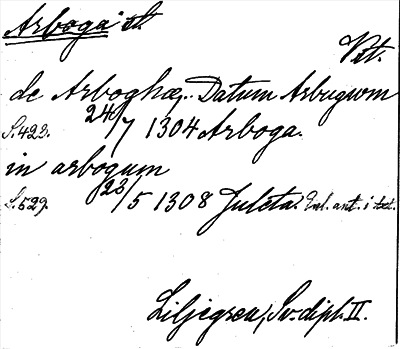 Arboga st.
Vst.
de Arboghæ, Datum Arbugwm
S. 423. 24/7 1304 Arboga.
in arbogum
S. 529. 23/5 1308 Juleta. Enl. ant. i txt.
Liljegren, Sv. dipl. II.